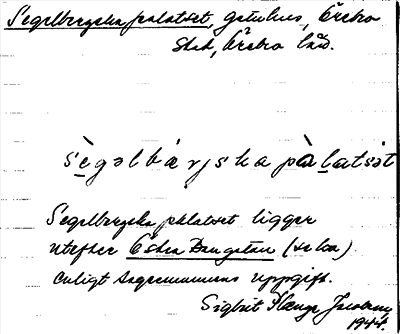 Segelbergska palatset, gatuhus, Örebro
stad, Örebro län.
sègəlbárjska pàlatsət
Segelbergska palatset ligger
utefter Östra Bangatan (se kba)
Enligt sagesmannens uppgift.
Sigbrit Plænge Jacobson
1944.